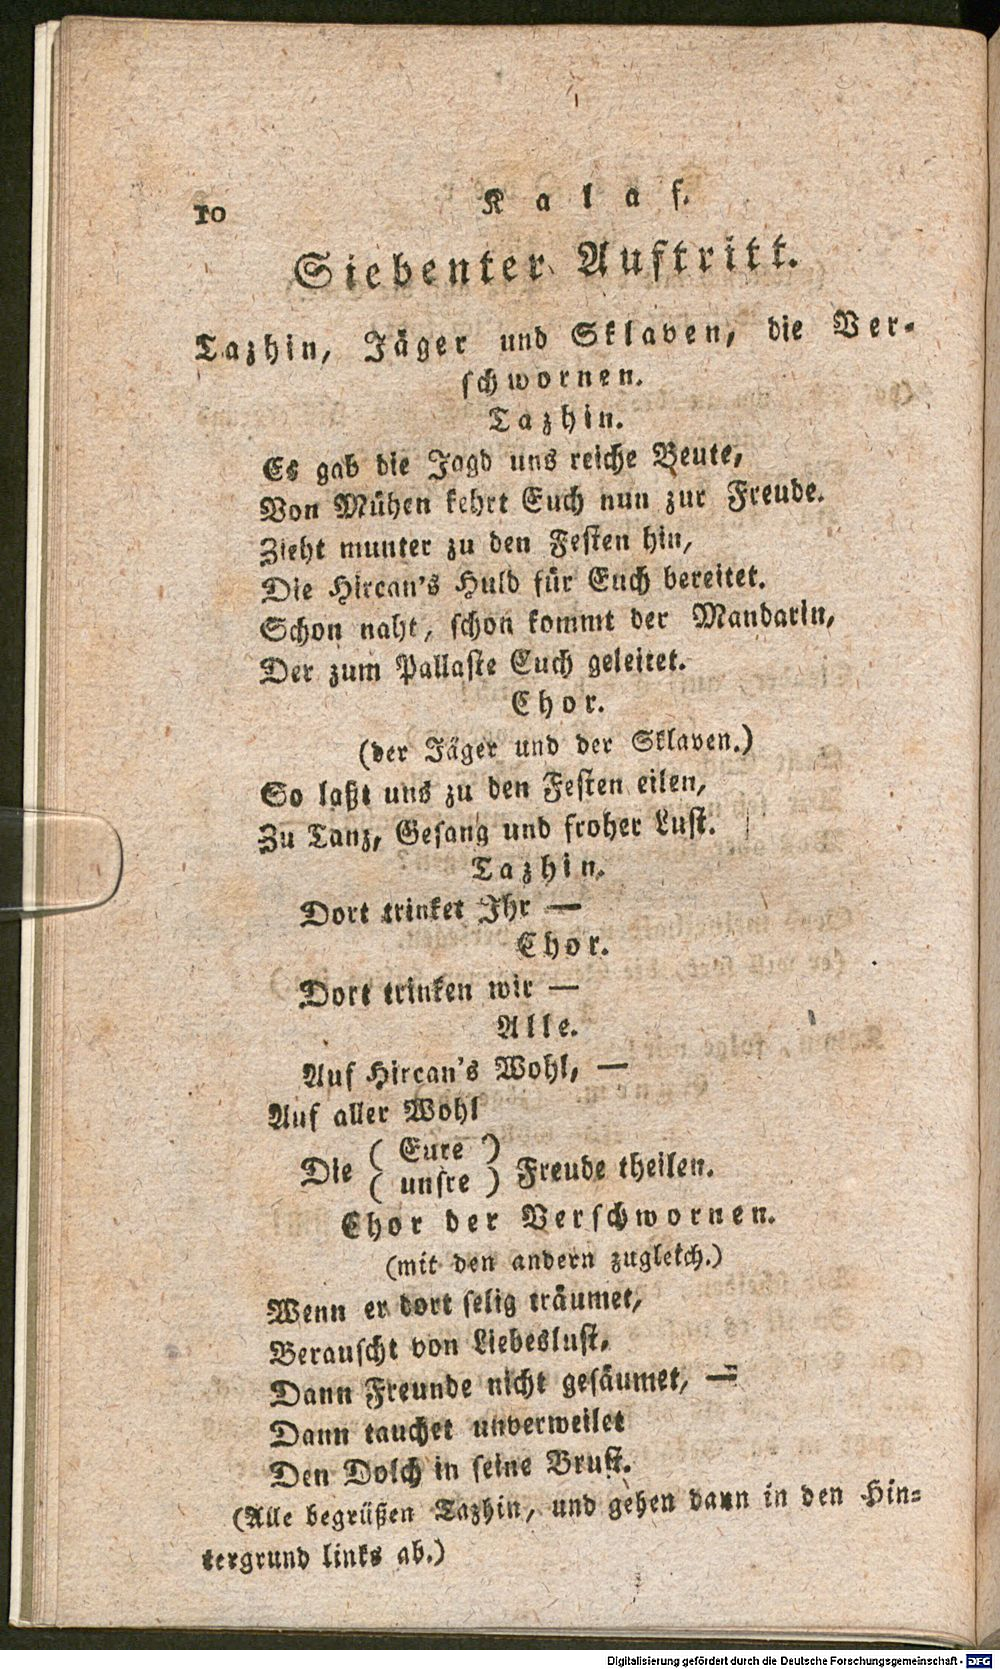 10 Kalaf.
Siebenter Auftritt.
Tazhin, Jäger und Sklaven, die Ver-
schwornen.
Tazhin.
Es gab die Jagd uns reiche Beute,
Von Mühen kehrt Euch nun zur Freude.
Zieht munter zu den Festen hin,
Die Hircan's Huld für Euch bereitet.
Schon naht, schon kommt der Mandarin,
Der zum Pallaste Euch geleitet.
Chor.
(der Jäger und der Sklaven.)
So laßt uns zu den Festen eilen,
Zu Tanz, Gesang und froher Lust.
Tazhin.
Dort trinket Ihr —
Chor.
Dort trinken wir —
Alle.
Auf Hircan's Wohl, —
Auf aller Wohl
( Eure )
Die ( unsre ) Freude theilen.
Chor der Verschwornen.
(mit den andern zugleich.)
Wenn er dort selig träumet,
Berauscht von Liebeslust,
Dann Freunde nicht gesäumet, —
Dann tauchet unverweilet
Den Dolch in seine Brust.
(Alle begrüßen Tazhin, und gehen dann in den Hin-
tergrund links ab.)
Digitalisierung gefördert durch die Deutsche Forschungsgemeinschaft - DFG